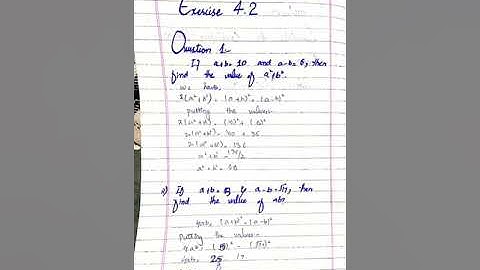 Exercise 4.2
Question 1:-
If a+b= 10 and a-b= 6, then
find the value of a²+b².
we have,
2(a²+b²) = (a+b)² + (a-b)²
putting the values:-
2(a²+b²) = (10)² + (6)²
2(a²+b²) = 100 + 36
2(a²+b²) = 136
a²+b² = 136/2
a²+b² = 68
If a+b= 5, a-b= √17, then
find the value of ab?
4ab= (a+b)² - (a-b)²
Putting the values:-
4ab= (5)² - (√17)²
4ab= 25 17